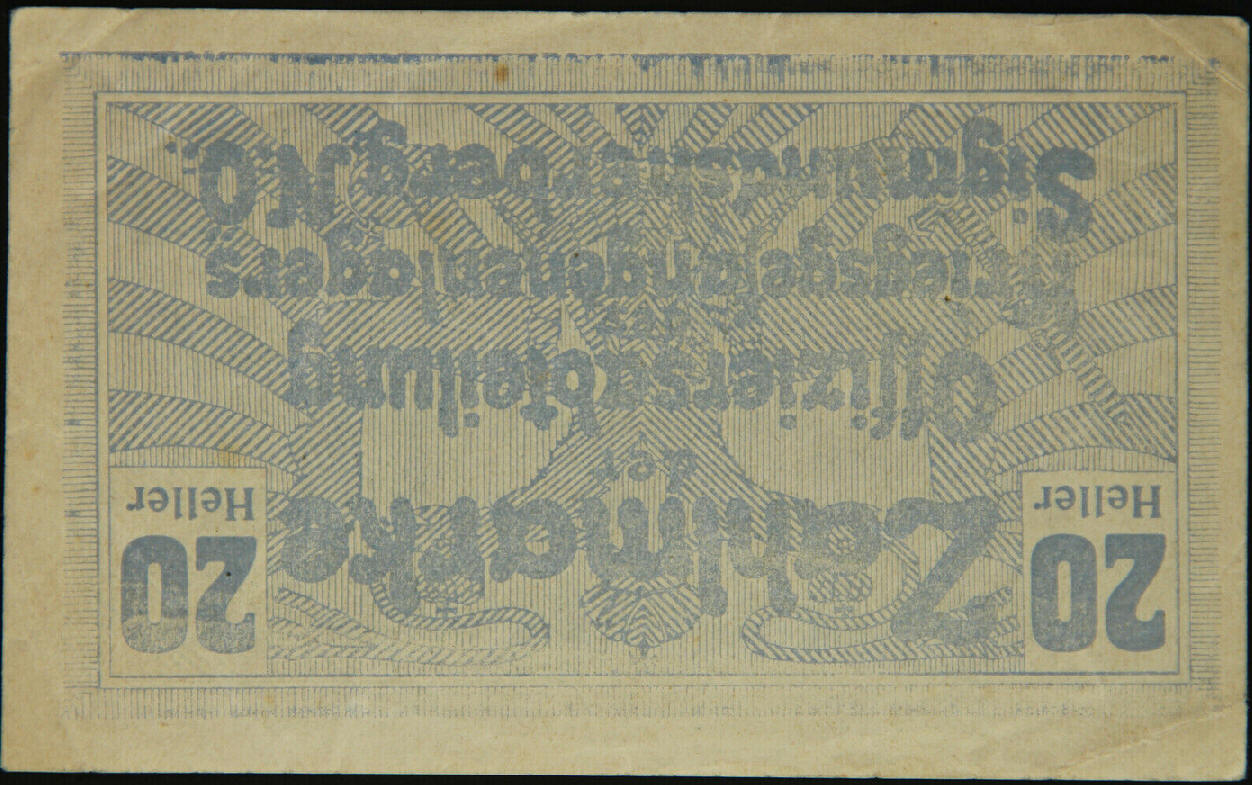 20 Zahlmarke 20
Heller der Heller
Offiziersabteilung
des
Kriegsgefangenenlagers
Sigmundsherberg N.Ö.